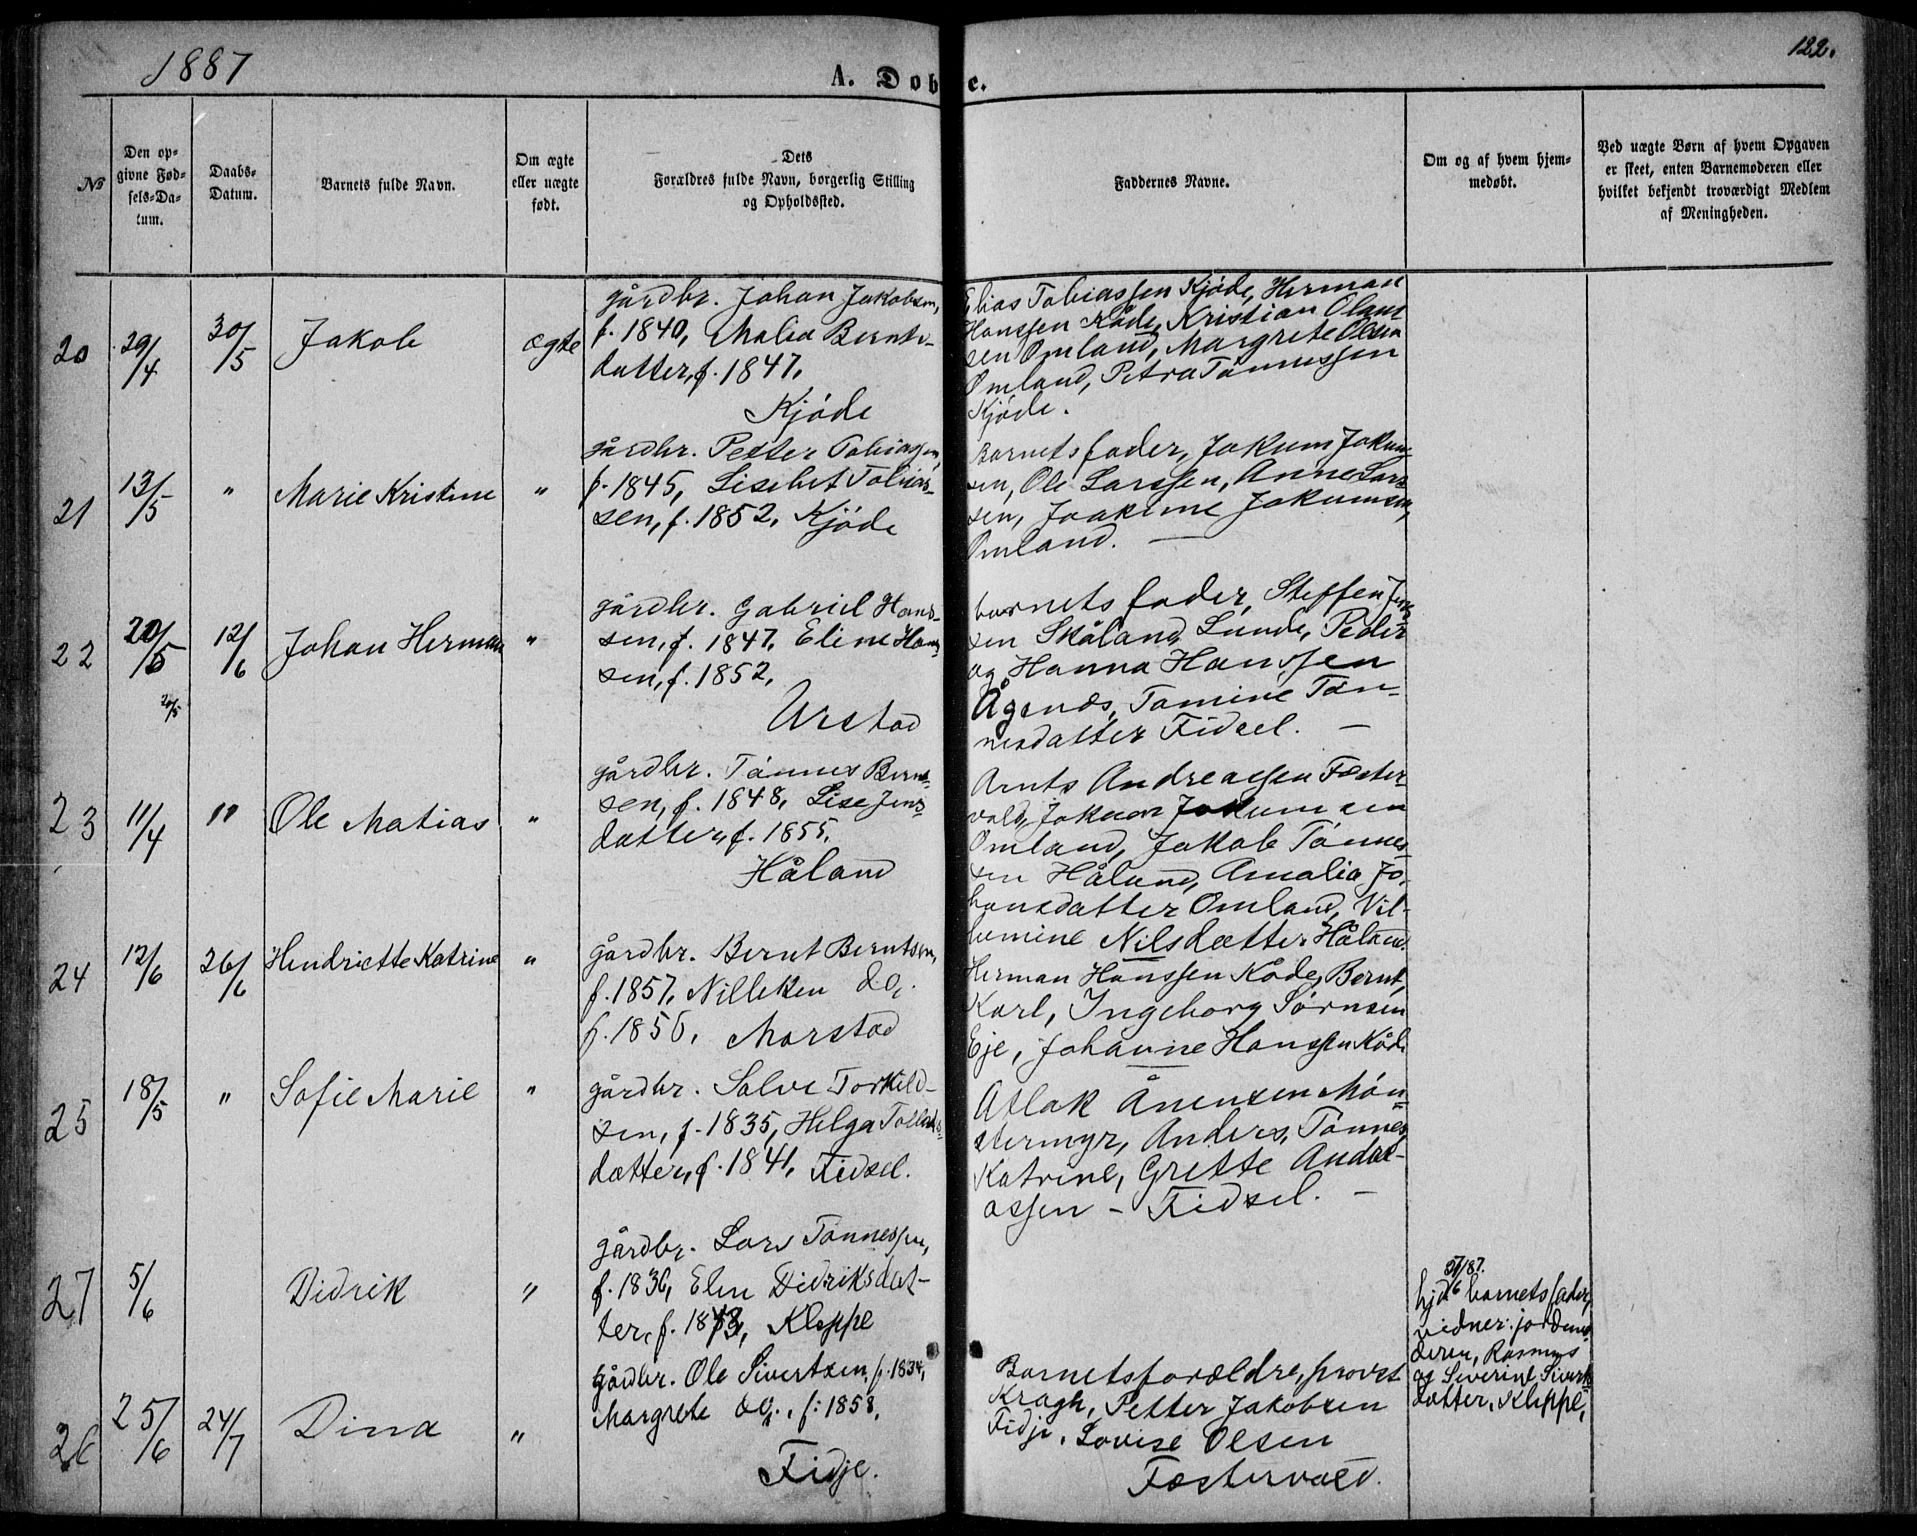 1887
122.
A. Døbte.
No
Den op-
givne Fød-
sels-Da-
tum.
Daabs-
Datum.
Barnets fulde Navn.
Om ægte
eller uægte
født.
Dets
Forældres fulde Navn, borgerlig Stilling
og Opholdssted.
Faddernes Navne.
Om og af hvem hjem-
medøbt.
Ved uægte Børn af hvem Opgaven
er skeet, enten Barnemoderen eller
hvilket bekjendt troværdigt Medlem
af Meningheden.
20
29/4
30/5
Jakob
ægte
gårdbr. Johan Jakobsen,
f. 1840, Malia Bernts-
datter, f. 1847,
Kjøde
Elias Tobiassen Kjøde, Herman
Hanssen Kåde, Kristian Olaus
sen Omland, Margrete Olsen
Omland, Petra Tønnessen
Kjøde.
21
13/5
"
Marie Kristine
"
gårdbr. Petter Tobiassen,
f. 1845, Lisebet Tobias-
sen, f. 1852, Kjøde
Barnets fader, Jokum Jokum
sen, Ole Larssen, Anne Lars
sen, Joakime Jokumsen,
Omland. —
22
20/5
12/6
Johan Herman
"
gårdbr. Gabriel Hans-
sen, f. 1847, Eline Han-
sen, f. 1852,
Urstad
20/5
barnets fader, Steffen
sen Skåland, Lunde, Peder
og Hanna Hanssen
Ågenæs, Tomine Tøn-
nesdatter Fidsel. —
23
11/4
"
Ole Matias
"
gårdbr. Tønnes Bernt-
sen, f. 1848, Lise Jens-
datter, f. 1855,
Håland
Arnts Andreassen Foster
vold, Jokum Jokumsen
Omland, Jakob Tønnes-
sen Håland, Amalia Jo-
hansdatter Omland, Vil-
hemine Nilsdatter Håland.
24
12/6
26/6
Hendriette Katrine
"
gårdbr. Bernt Berntsen,
f. 1857, Nilleken do,
f. 1856, Morstad
Herman Hanssen Kåde, Bernt,
Karl, Ingeborg Sørnsen
Eje, Johanne Hanssen Kåde
25
18/5
"
Sofie Marie
"
gårdbr. Salve Torkild-
sen, f. 1835, Helga Tollaks-
datter, f. 1841, Fidsel.
Aslak Ånensen Møn-
stermyr, Anders, Tønnes,
Katrine, Grette Andre-
assen – Fidsel. —
27
5/6
Didrik
"
gårdbr. Lars Tønnessen,
f. 1836, Elen Didriksdat-
ter, f. 1843, Kleppe
/87.
hjd barnets fader,
vidner: jordemo-
deren, Rasmus
og Severine Siverts
datter, Kleppe,
26
25/6
24/7
Dina
"
gårdbr. Ole Sivertsen, f. 1834,
Margrete do., f. 1858,
Fidje.
Barnets forældre, provst
Kragh, Petter Jakobsen
Fidje, Lovise Olsen
Fostervold.